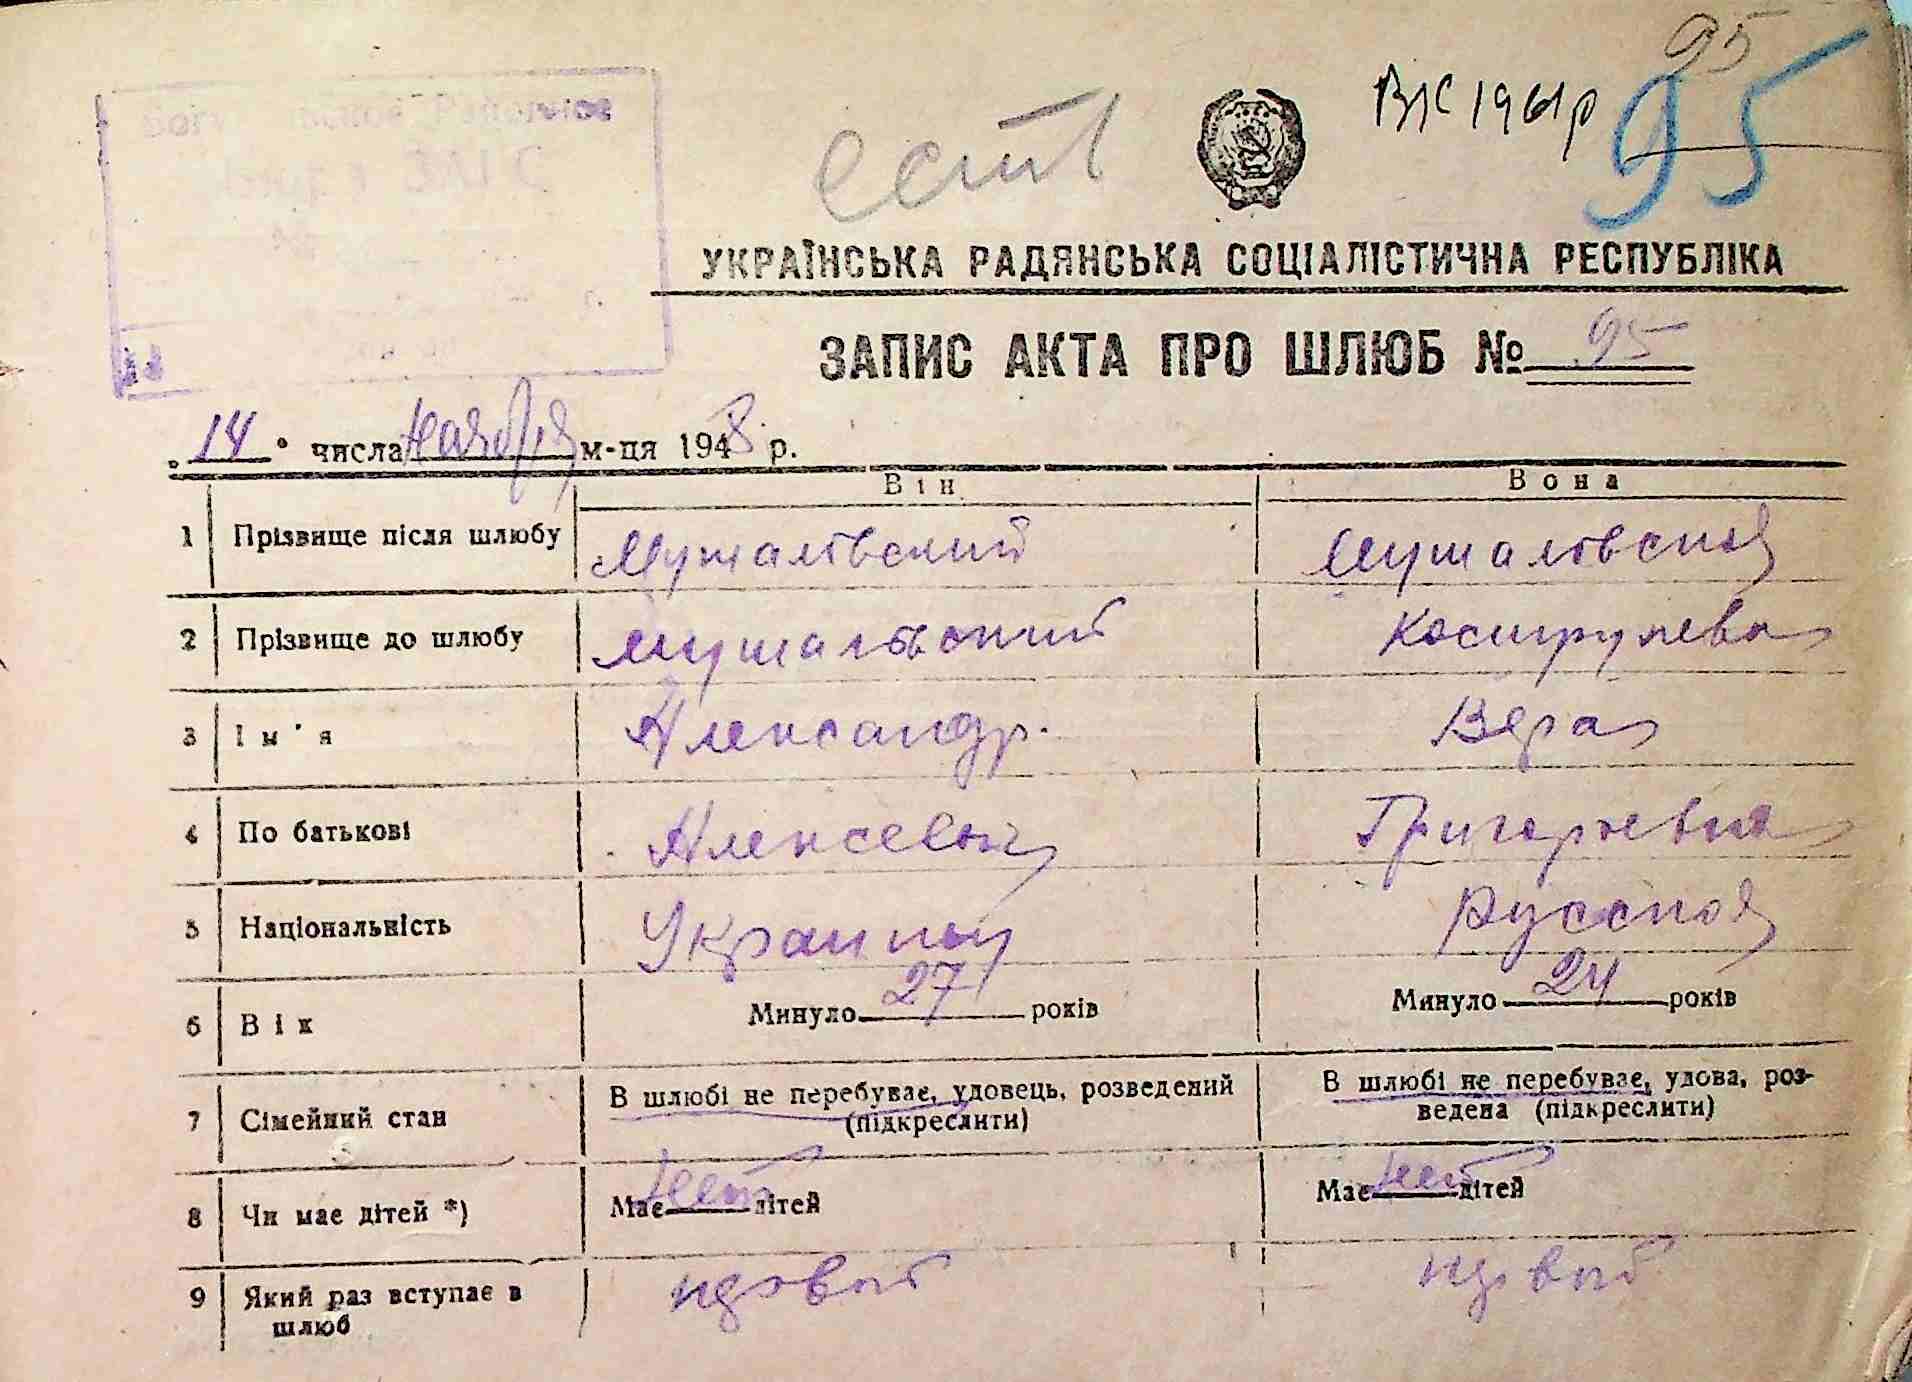 95
есть
ВК 1961р
95
УКРАЇНСЬКА РАДЯНСЬКА СОЦІАЛІСТИЧНА РЕСПУБЛІКА
ЗАПИС АКТА ПРО ШЛЮБ № 95
„14“ числа ноября м-ця 1948 р.
Він Вона
1 Прізвище після шлюбу Мушаловский Мушаловская
2 Прізвище до шлюбу Мушаловский
3 Ім'я Александр Вера
4 По батькові Алексеевич Григорьевна
5 Національність Украинец Русская
6 Вік Минуло 27 років Минуло 24 років
7 Сімейний стан В шлюбі не перебуває, удовець, розведений (підкреслити) В шлюбі не перебуває, удова, розведена (підкреслити)
8 Чи має дітей *) Має нет дітей Має нет дітей
9 Який раз вступає в шлюб первый первый